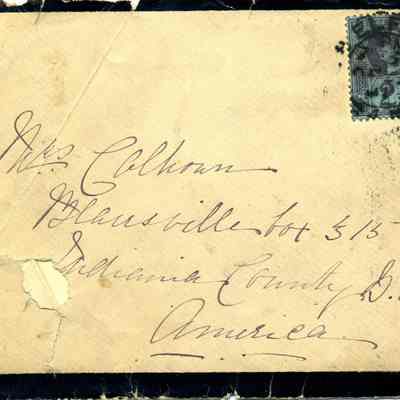 Mrs Calhoun
Blairsville box 315
Indiania County
America